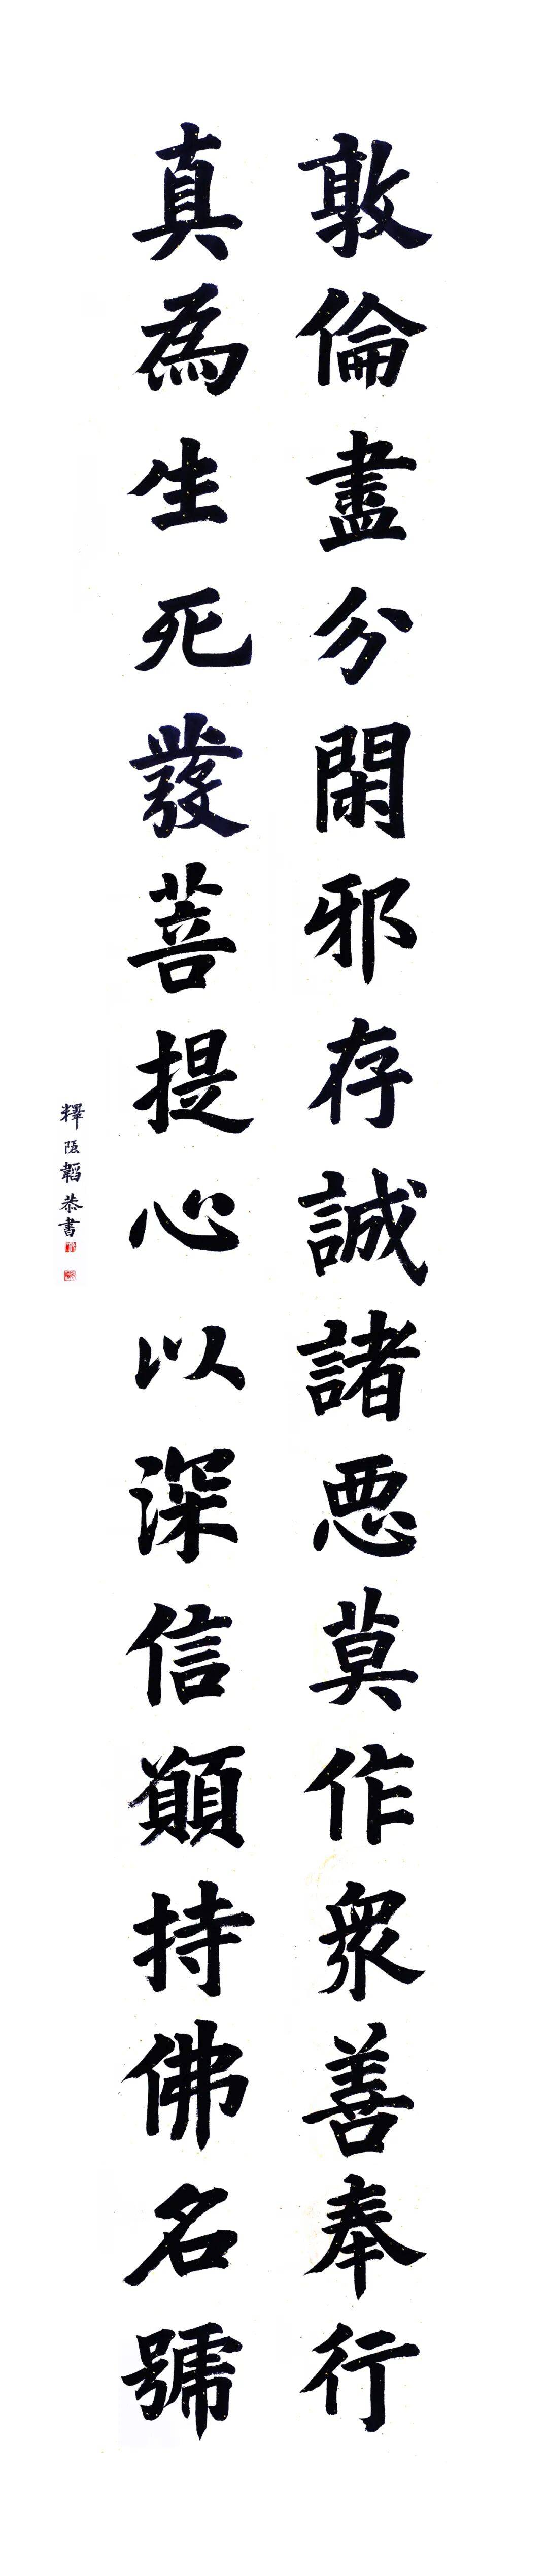 敦倫盡分閑邪存誠諸惡莫作衆善奉行
真為生死發菩提心以深信願持佛名號
釋恆韜恭書